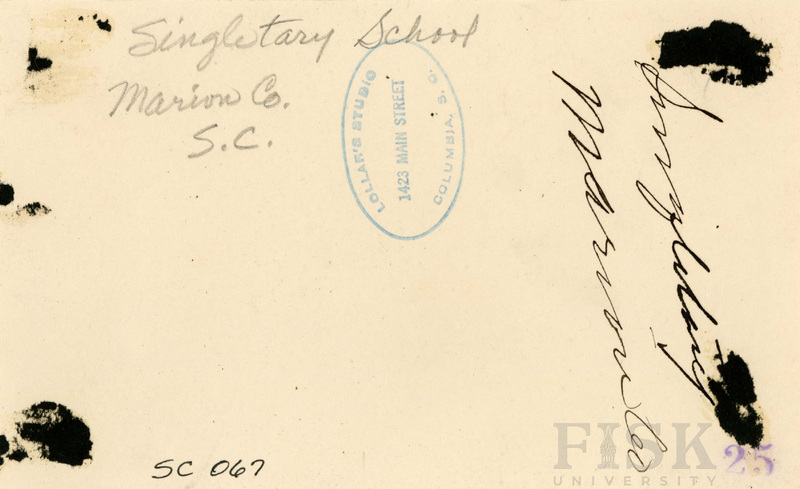 Singletary School
Marion Co.
S.C.
LOLLAR'S STUDIO
1423 MAIN STREET
COLUMBIA, S. C.
Singletary
Marion Co
SC 067
FISK
UNIVERSITY
25